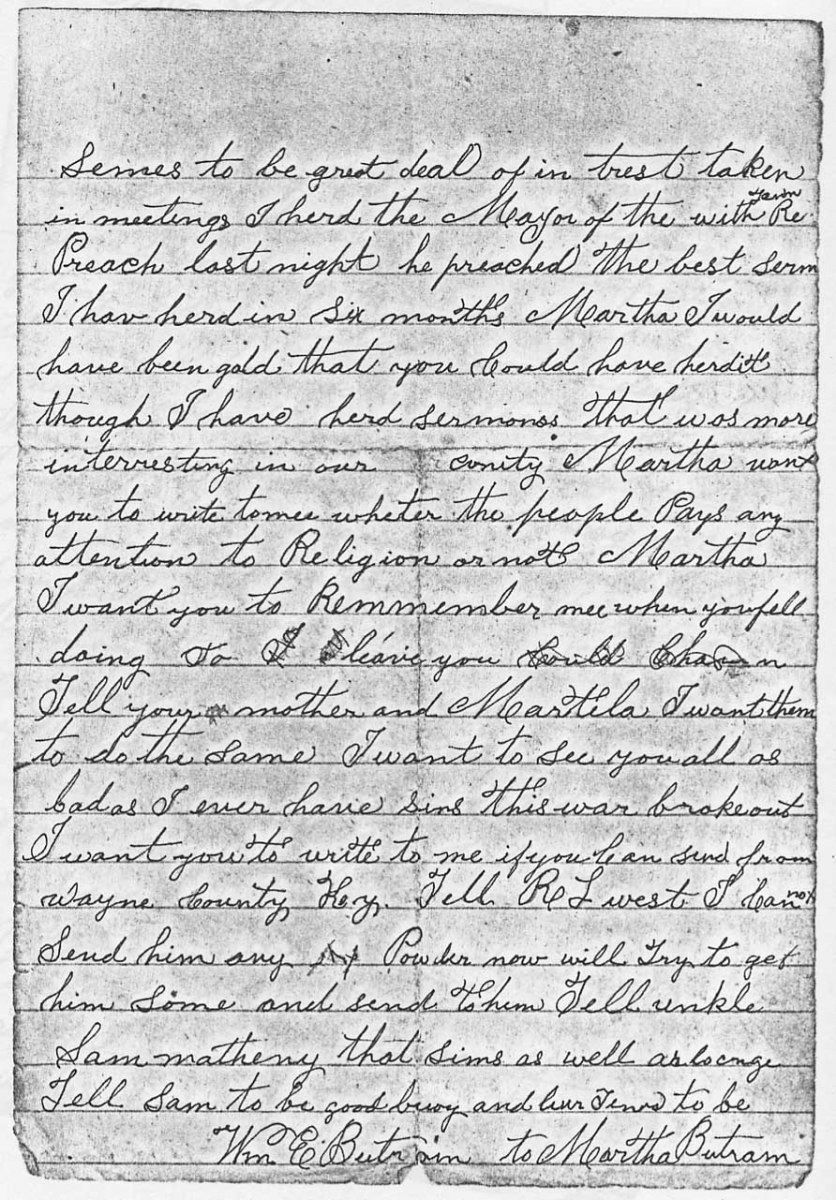 Semes to be gret deal of in trest taken
in meetings I herd the Mayor of the with town Re
Preach last night he preached the best serm
I hav herd in six months Martha I would
have been gald that you Could have herd it
though I have herd sermons that was more
interresting in our conity Martha want
you to write to mee wheter the people Pays any
attention to Religion or not Martha
I want you to Remmember mee when you fell
doing So leave you
Tell your mother and Martela I want them
to do the same I want to see you all as
bad as I ever have sins this war broke out
I want you to write to me if you Can send from
Wayne County Ky. Tell R L west I Can not
Send him any Powder now will Try to get
him Some and send to him Tell unkle
Sam matheny that sims as well as
Tell Sam to be good buoy and to be
Wm E Butram to Martha Butram